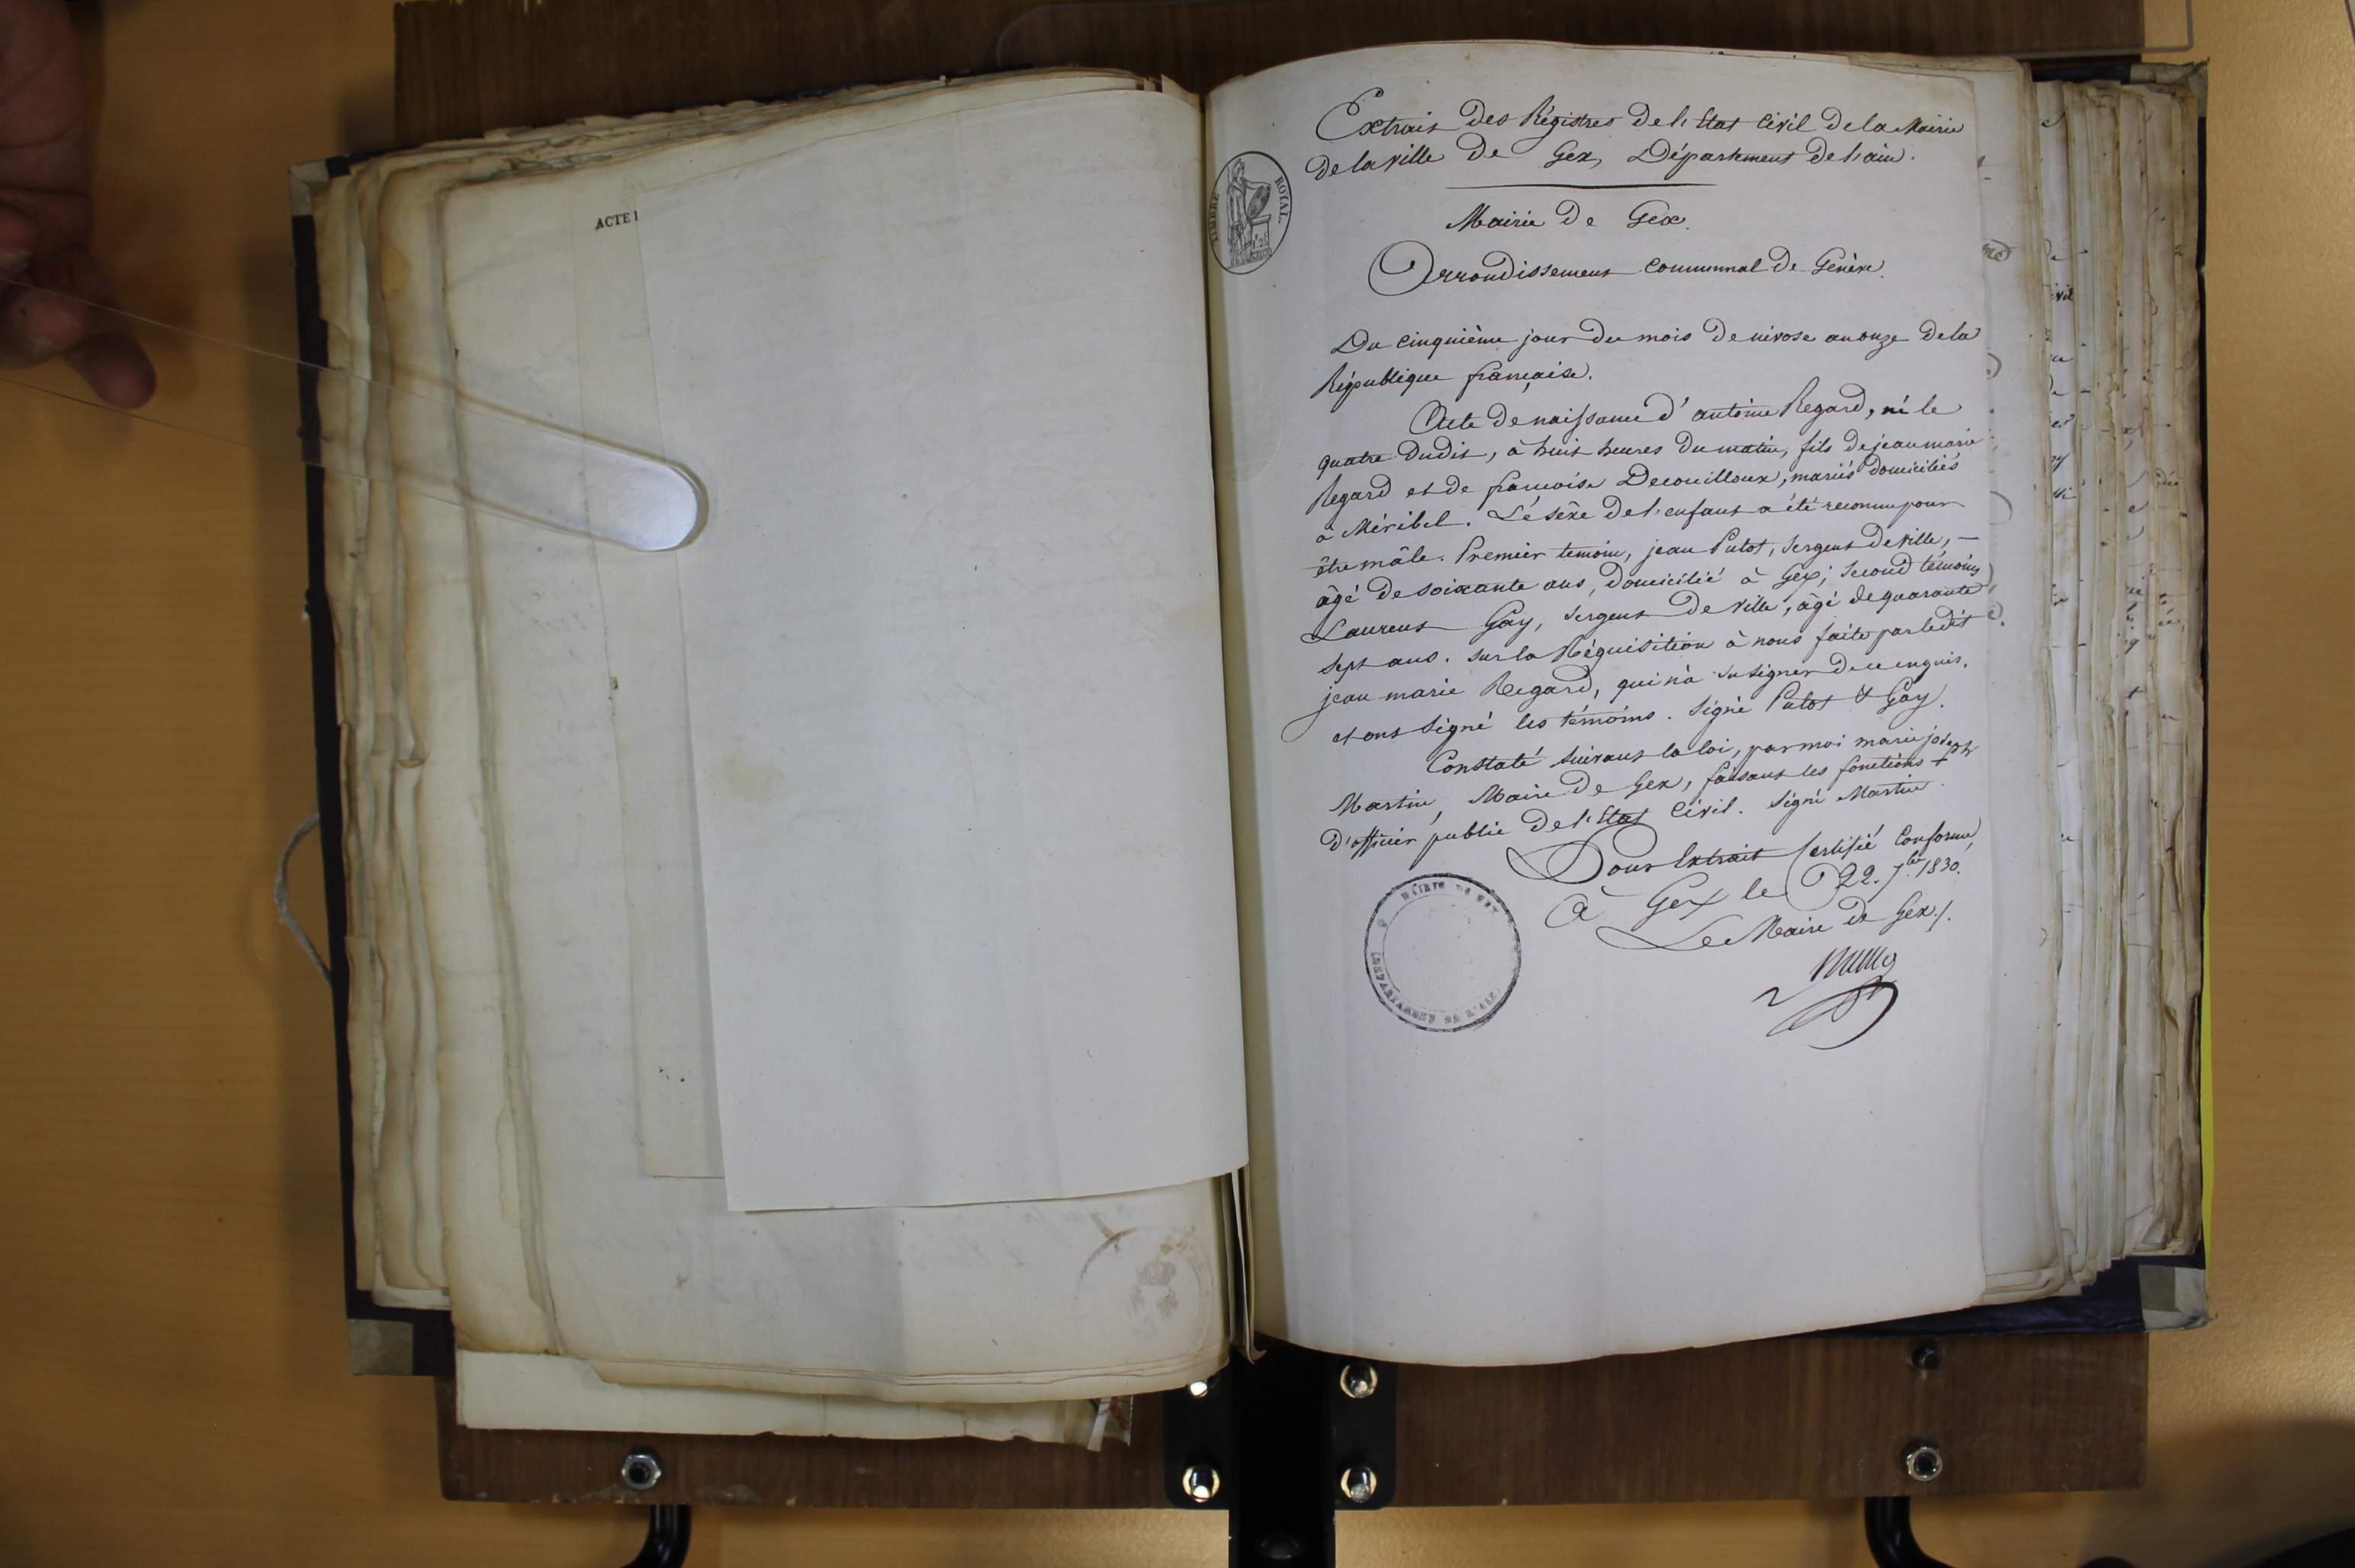 ACTE
Extrait des Régistres de l'Etat Civil de la Mairie
de la ville de Gex, Département de l'ain.
TIMBRE ROYAL
Mairie de Gex.
Arrondissement communal de Genève.
Du cinquième jour du mois de nivose an onze de la
République française.
Acte de naissance d'antoine Regard, né le
quatre dudit, à huit heures du matin, fils de jean marie
Regard et de francoise Decouilloux, mariés domiciliés
à Méribel. Le sexe de l'enfant a été reconnu pour
être mâle. Premier temoin, jean Putot, sergent de ville, —
âgé de soixante ans, domicilié à Gex; second témoin,
Laurent Gay, sergent de ville, âgé de quarante
sept ans. sur la Réquisition à nous faite par ledit
jean marie Regard, qui n'a su signer de ce enquis,
et ont signé les témoins. Signé Putot & Gay.
Constaté suivant la loi, par moi marie joseph
Martin, Maire de Gex, faisant les fonctions +
d'officier public de l'Etat Civil. Signé Martin.
Pour Extrait Certifié Conforme,
à Gex le 22. 7bre 1830.
Le Maire de Gex./.
MAIRIE DE GEX
DEPARTEMENT DE L'AIN